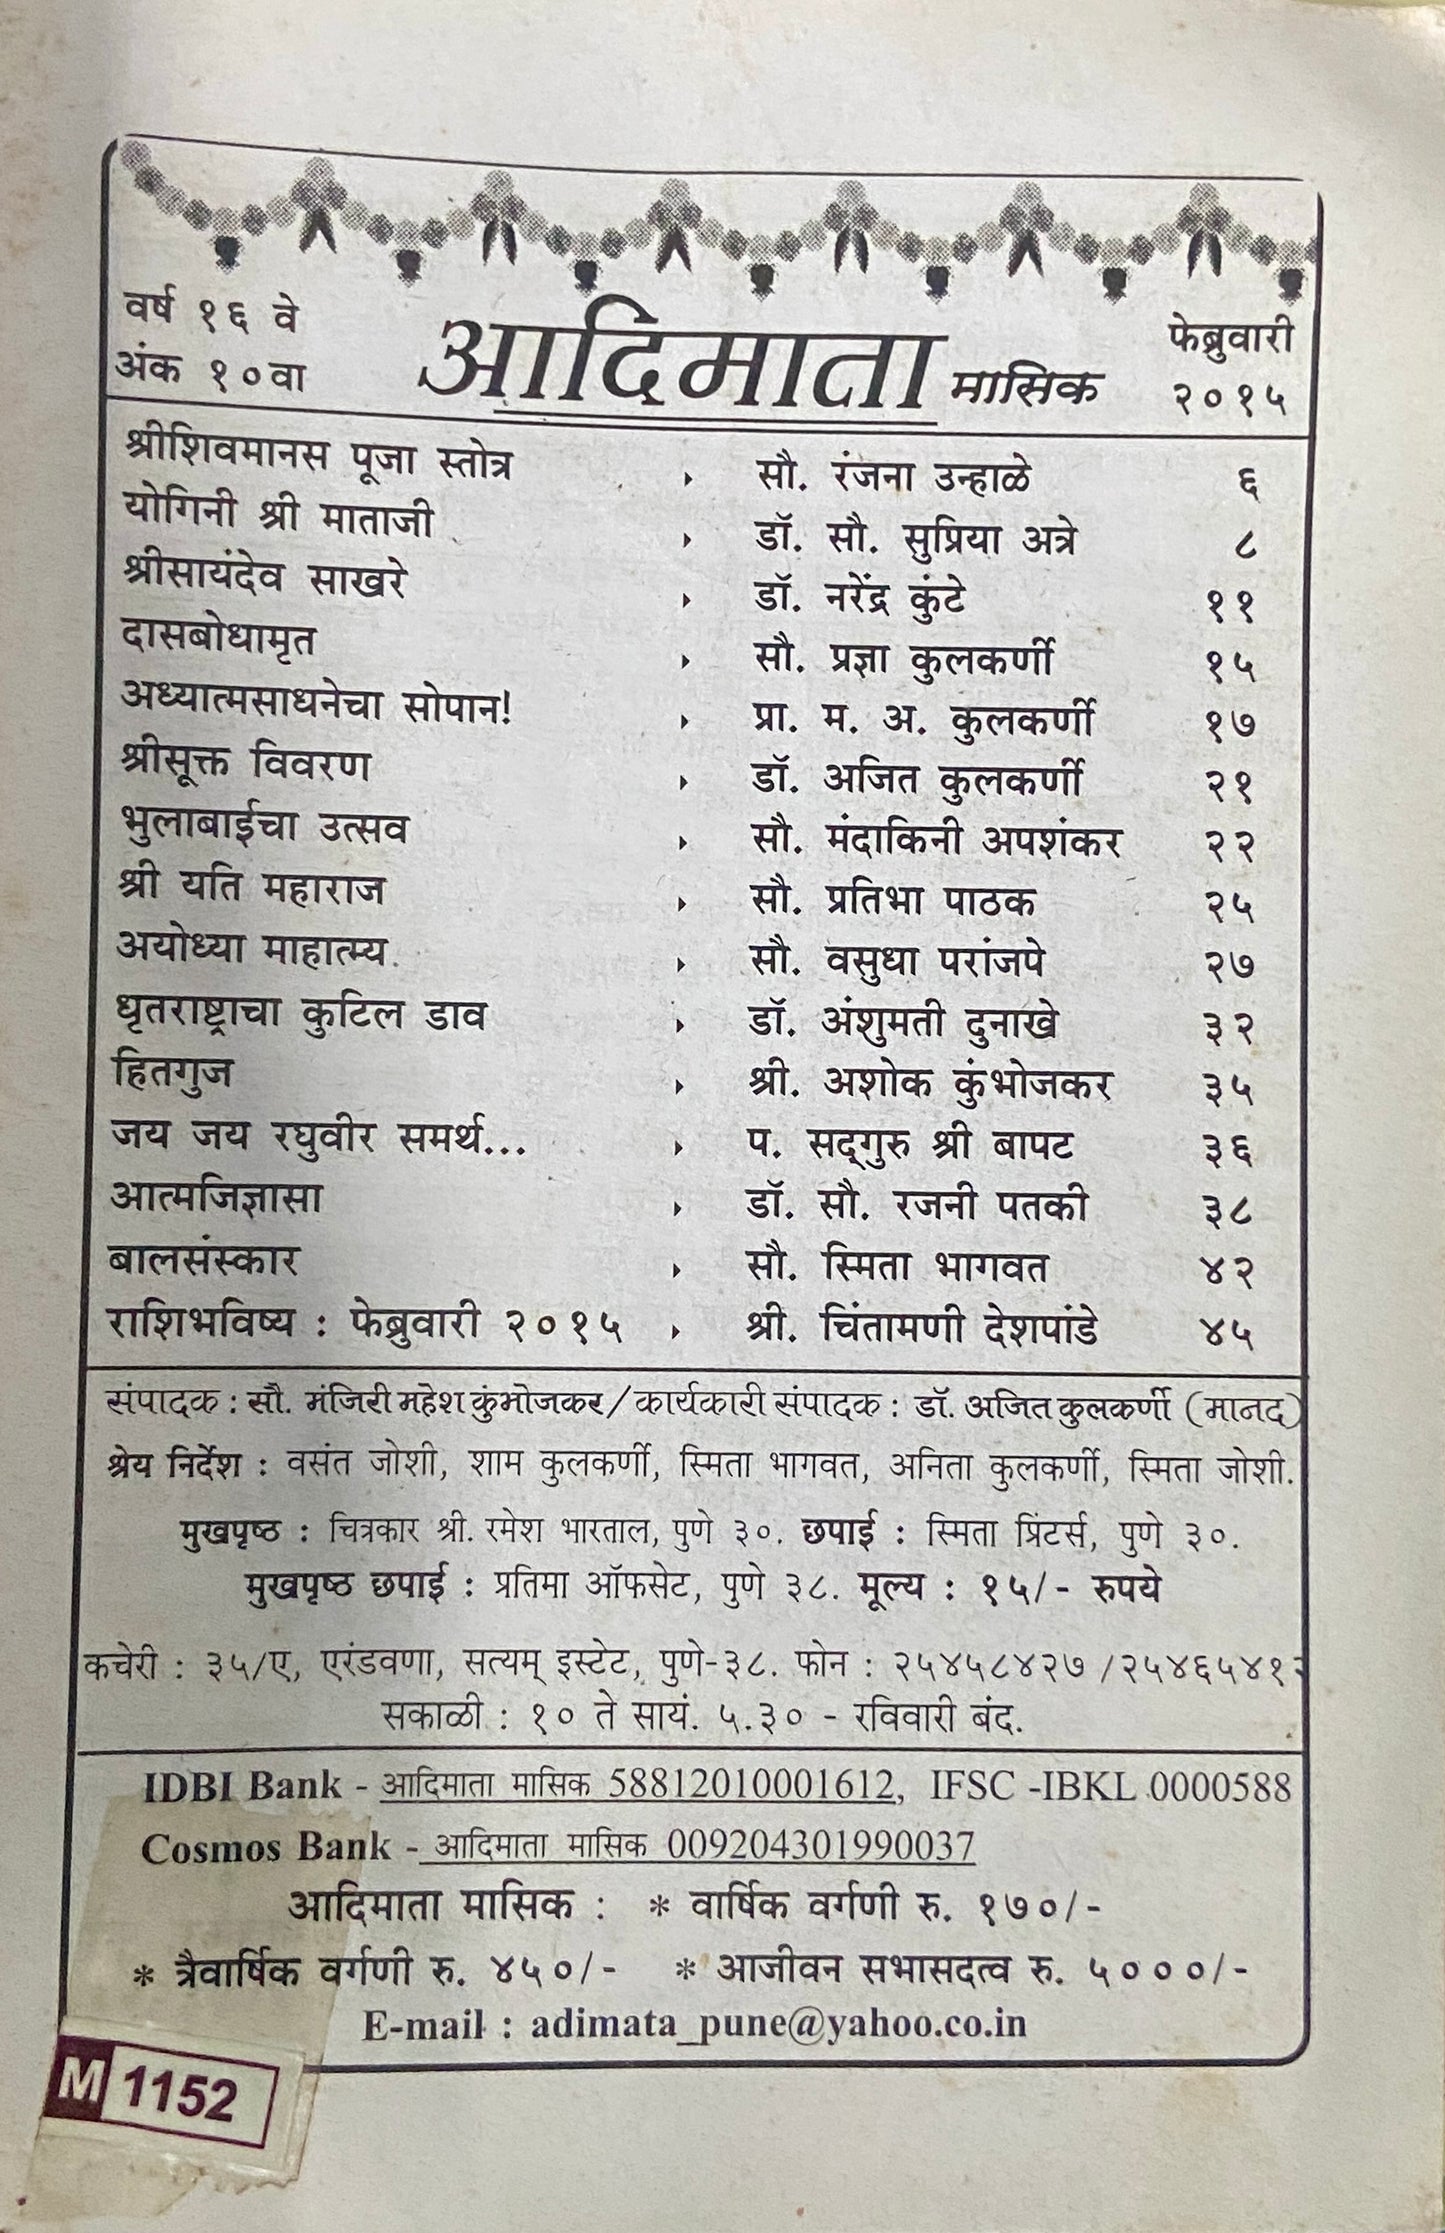 वर्ष १६ वे
अंक १०वा
आदिमाता मासिक
फेब्रुवारी
२०१५
श्रीशिवमानस पूजा स्तोत्र सौ. रंजना उन्हाळे ६
योगिनी श्री माताजी डॉ. सौ. सुप्रिया अत्रे ८
श्रीसायंदेव साखरे डॉ. नरेंद्र कुंटे ११
दासबोधामृत सौ. प्रज्ञा कुलकर्णी १५
अध्यात्मसाधनेचा सोपान! प्रा. म. अ. कुलकर्णी १७
श्रीसूक्त विवरण डॉ. अजित कुलकर्णी २१
भुलाबाईचा उत्सव सौ. मंदाकिनी अपशंकर २२
श्री यति महाराज सौ. प्रतिभा पाठक २५
अयोध्या माहात्म्य सौ. वसुधा परांजपे २७
धृतराष्ट्राचा कुटिल डाव डॉ. अंशुमती दुनाखे ३२
हितगुज श्री. अशोक कुंभोजकर ३५
जय जय रघुवीर समर्थ... प. सद्‌गुरु श्री बापट ३६
आत्मजिज्ञासा डॉ. सौ. रजनी पतकी ३८
बालसंस्कार सौ. स्मिता भागवत ४२
राशिभविष्य : फेब्रुवारी २०१५ श्री. चिंतामणी देशपांडे ४५
संपादक : सौ. मंजिरी महेश कुंभोजकर / कार्यकारी संपादक : डॉ. अजित कुलकर्णी (मानद)
श्रेय निर्देश : वसंत जोशी, शाम कुलकर्णी, स्मिता भागवत, अनिता कुलकर्णी, स्मिता जोशी.
मुखपृष्ठ : चित्रकार श्री. रमेश भारताल, पुणे ३०. छपाई : स्मिता प्रिंटर्स, पुणे ३०.
मुखपृष्ठ छपाई : प्रतिमा ऑफसेट, पुणे ३८. मूल्य : १५/- रुपये
कचेरी : ३५/ए, एरंडवणा, सत्यम् इस्टेट, पुणे-३८. फोन : २५४५८४२७ /२५४६५४१२
सकाळी : १० ते सायं. ५.३० - रविवारी बंद.
IDBI Bank - आदिमाता मासिक 58812010001612, IFSC -IBKL 0000588
Cosmos Bank - आदिमाता मासिक 009204301990037
आदिमाता मासिक : * वार्षिक वर्गणी रु. १७०/-
* त्रैवार्षिक वर्गणी रु. ४५०/- * आजीवन सभासदत्व रु. ५०००/-
E-mail : adimata_pune@yahoo.co.in
M 1152